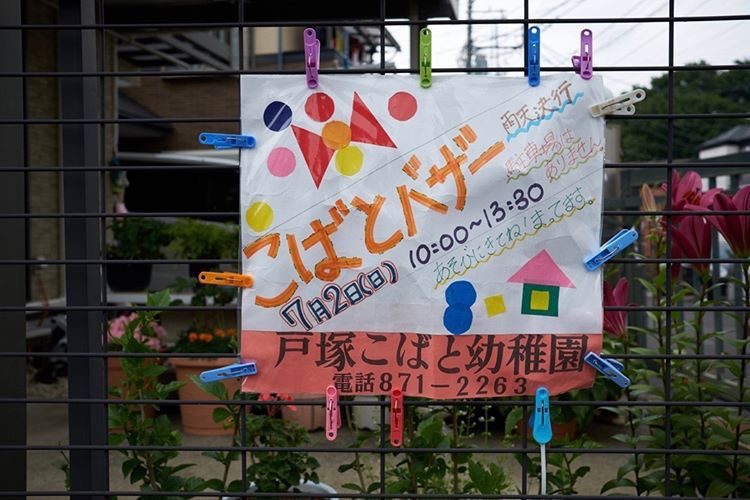 雨天決行
駐車場は
ありません。
こばとバザー
7月2日(日)
10:00〜13:30
あそびにきてね!まってます。
戸塚こばと幼稚園
電話871-2263